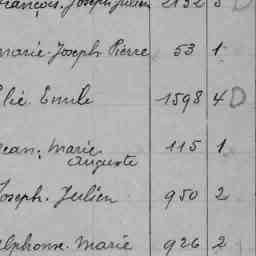 François. Joseph Julien 2132 3 D
Marie Joseph Pierre 53 1
Elie. Emile 1598 4 D
Jean. Marie 115 1
Auguste
Joseph. Julien 950 2
Alphonse. Marie 926 2